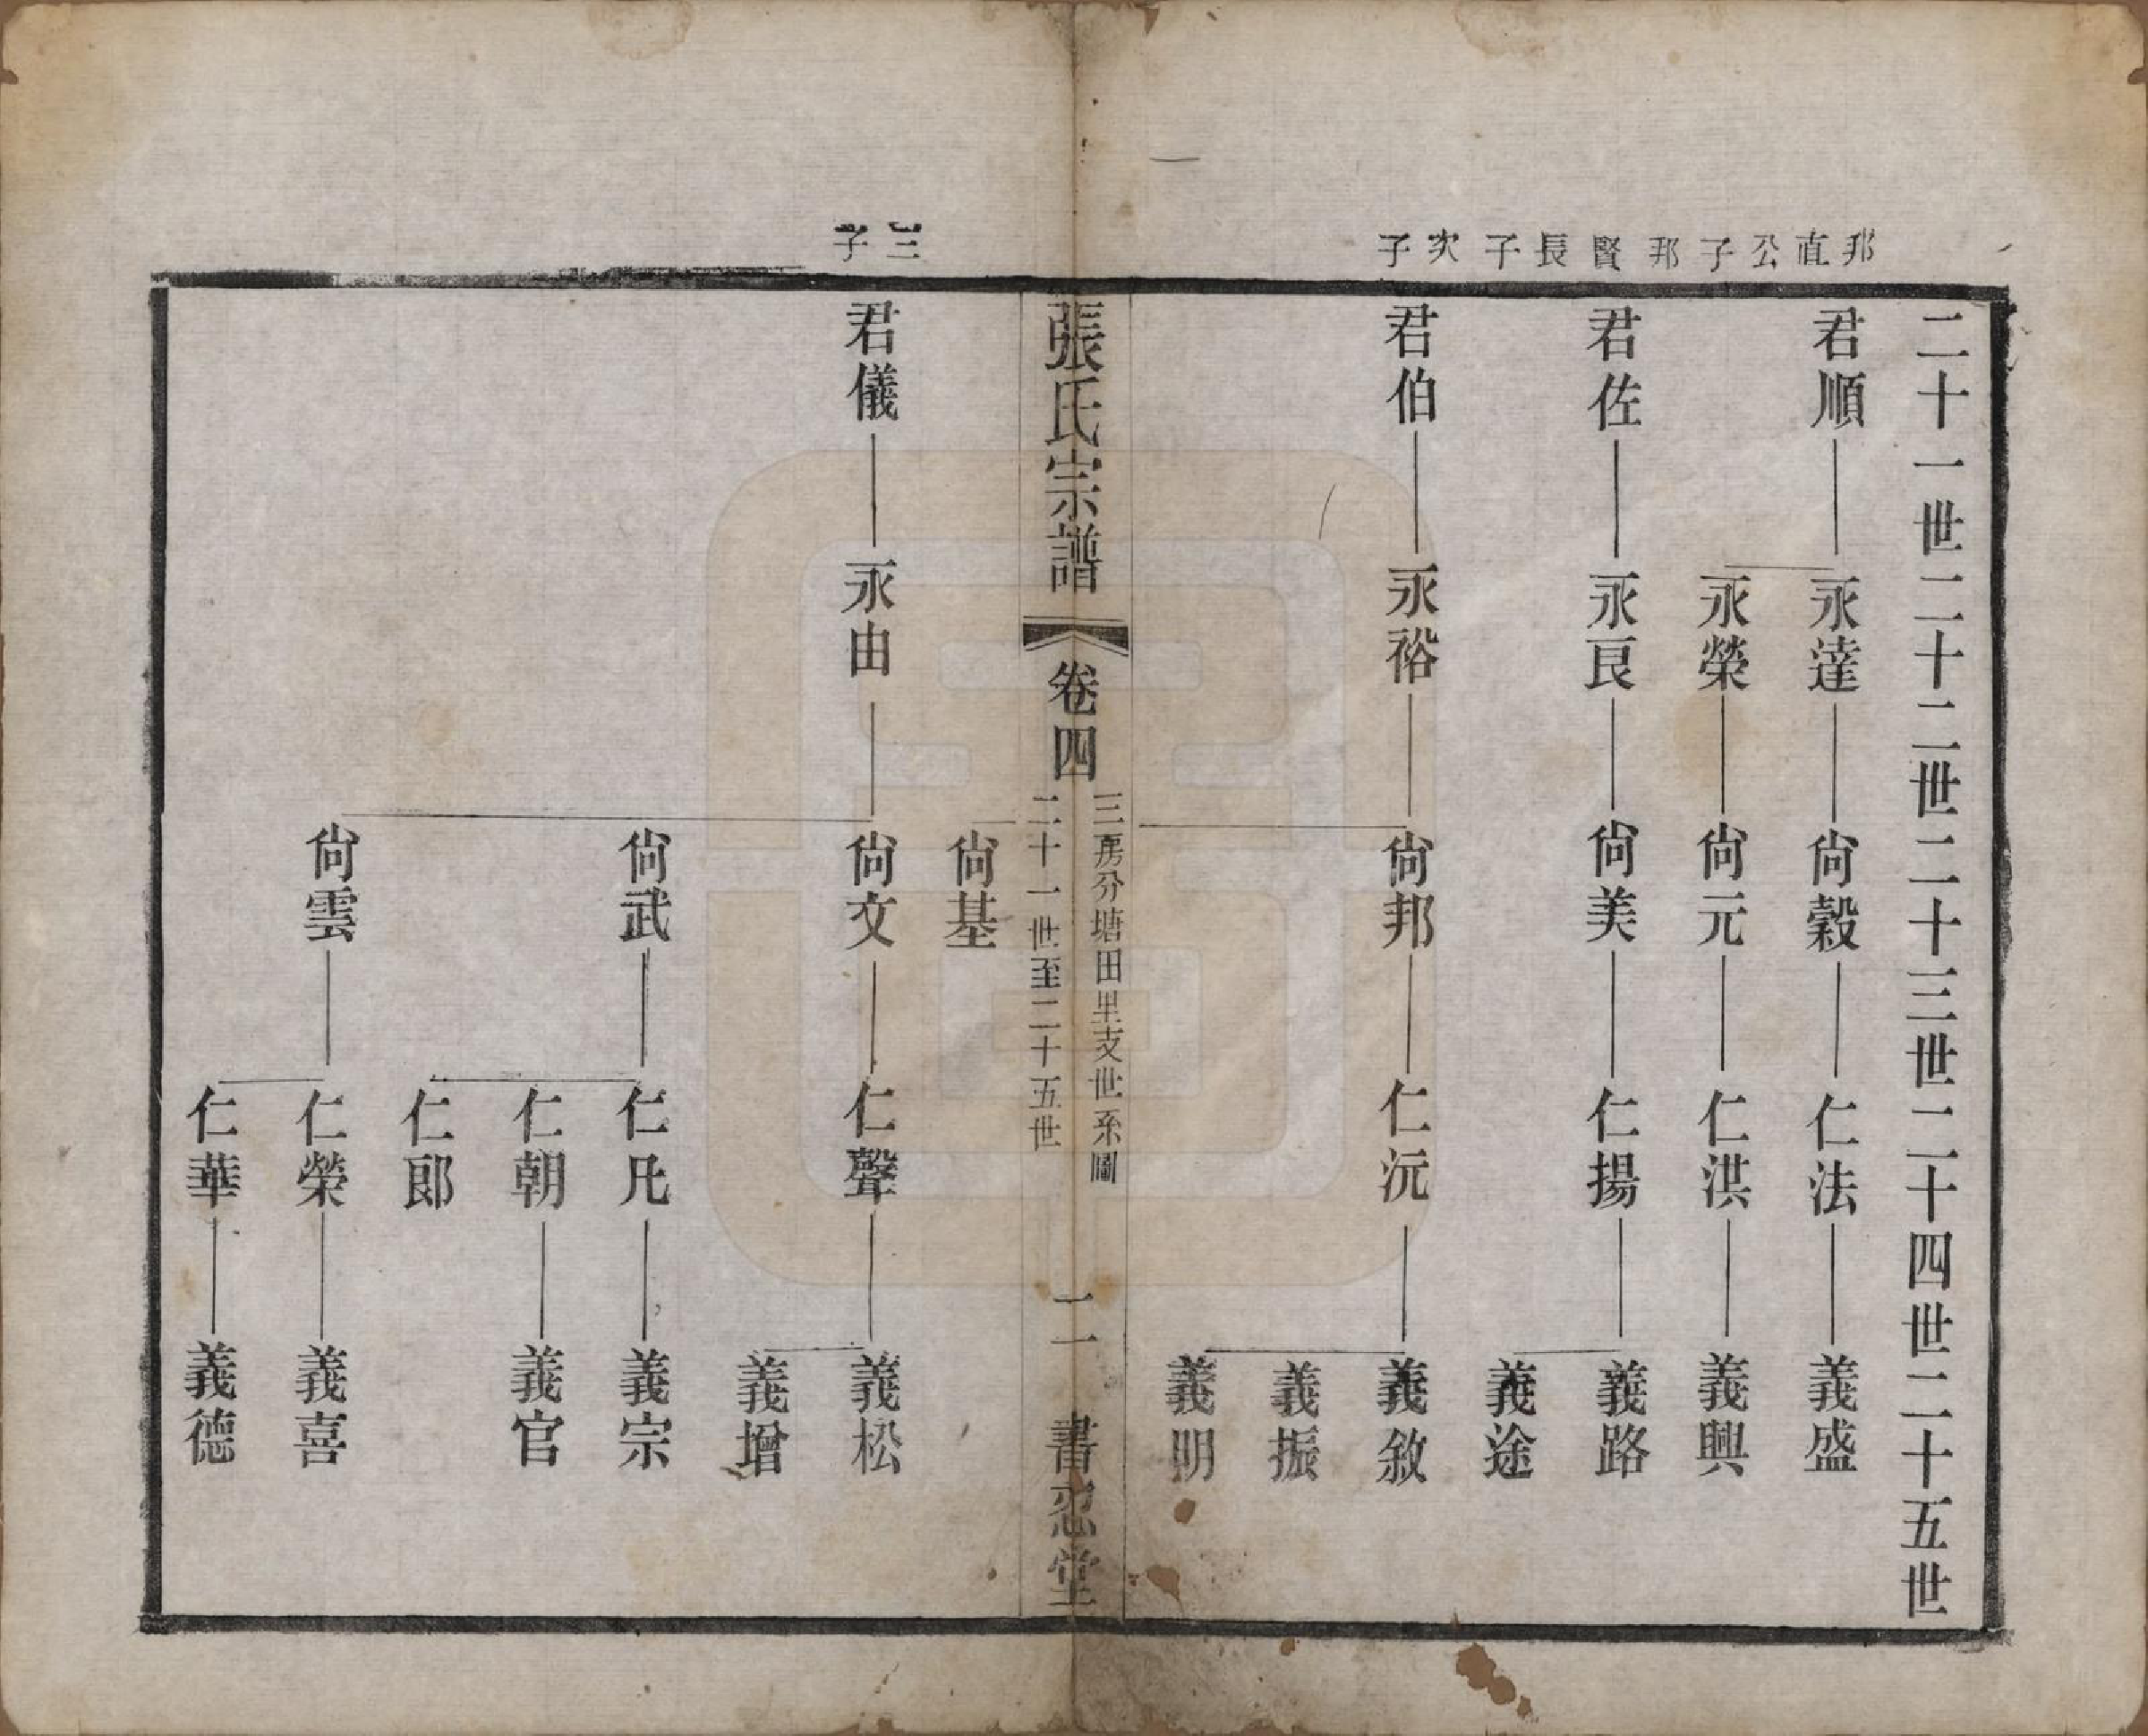 邦直公子邦賢長子次子
二十一世二十二世二十三世二十四世二十五世
君順 永達 尙穀 仁法 義盛
永榮 尙元 仁洪 義興
君佐 永良 尙美 仁揚 義路
義途
君伯 永裕 尙邦 仁沅 義敘
義振
義明
張氏宗譜 卷四 三房分塘田里支世系圖 二十一世至二十五世 二 書忍堂
尙基
三子
君儀 永由 尙文 仁聲 義松
義增
尙武 仁凡 義宗
仁朝 義官
仁郎
尙雲 仁榮 義喜
仁華 義德